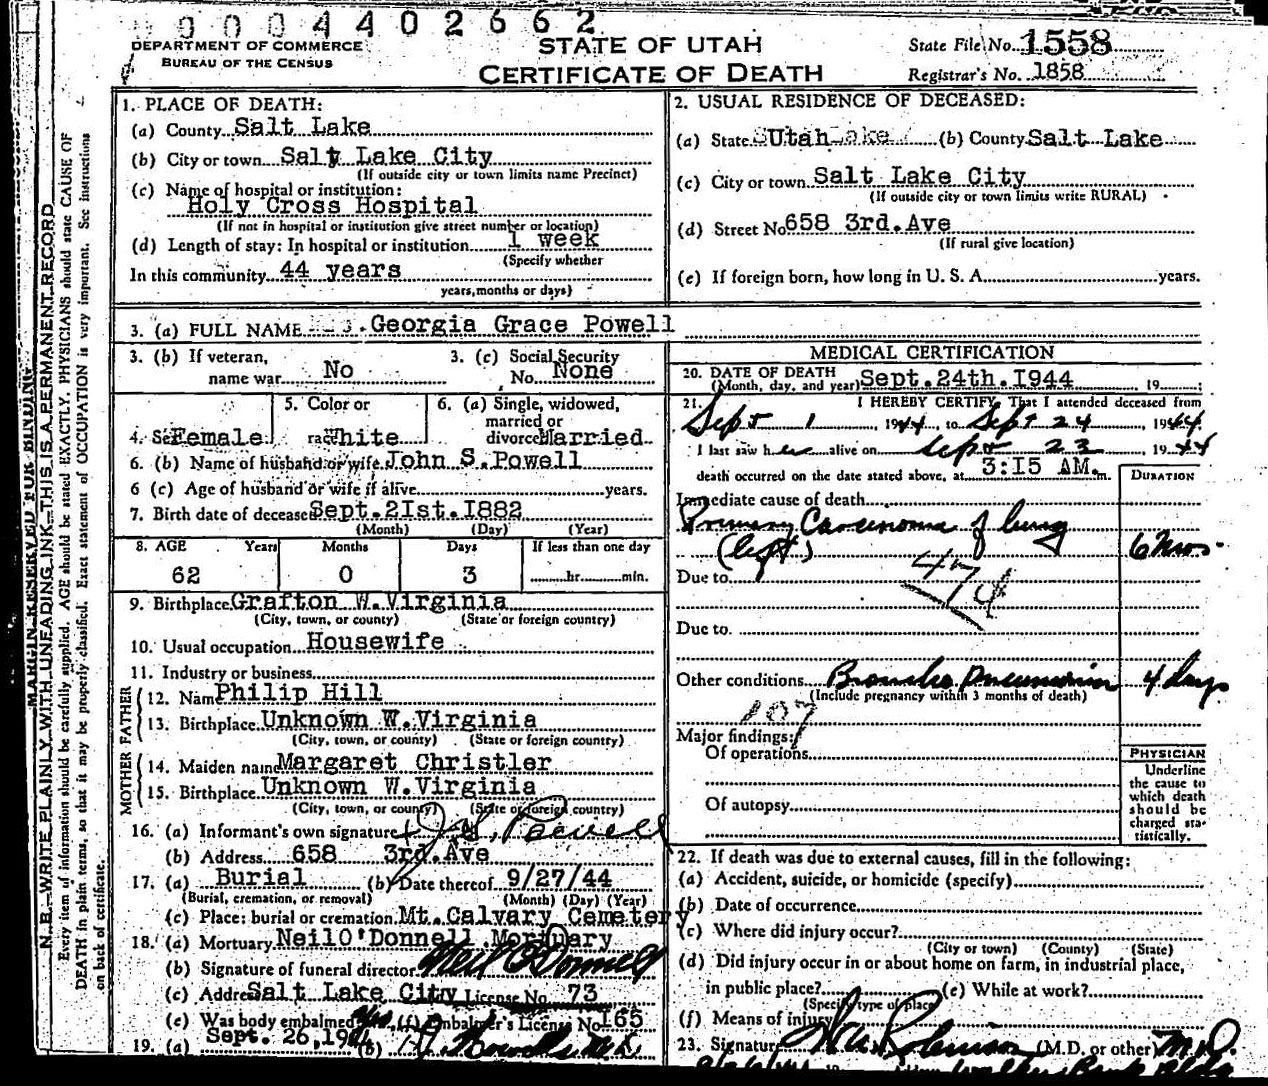 0004402662
DEPARTMENT OF COMMERCE
BUREAU OF THE CENSUS
STATE OF UTAH
CERTIFICATE OF DEATH
State File No. 1558
Registrar's No. 1858
MARGIN RESERVED FOR BINDING
N. B.—WRITE PLAINLY WITH UNFADING INK—THIS IS A PERMANENT RECORD
Every item of information should be carefully supplied. AGE should be stated EXACTLY. PHYSICIANS should state CAUSE OF
DEATH in plain terms, so that it may be properly classified. Exact statement of OCCUPATION is very important. See instructions
on back of certificate.
1. PLACE OF DEATH:
(a) County Salt Lake
(b) City or town Salt Lake City
(If outside city or town limits name Precinct)
(c) Name of hospital or institution:
Holy Cross Hospital
(If not in hospital or institution give street number or location)
(d) Length of stay: In hospital or institution 1 week
(Specify whether
In this community 44 years
years, months or days)
2. USUAL RESIDENCE OF DECEASED:
(a) State Utah (b) County Salt Lake
(c) City or town Salt Lake City
(If outside city or town limits write RURAL)
(d) Street No 658 3rd.Ave
(If rural give location)
(e) If foreign born, how long in U. S. A. years.
3. (a) FULL NAME Georgia Grace Powell
3. (b) If veteran, name war No
3. (c) Social Security No. None
4. Sex Female
5. Color or race White
6. (a) Single, widowed, married or divorced Married
6. (b) Name of husband or wife John S. Powell
6 (c) Age of husband or wife if alive years.
7. Birth date of deceased Sept.2Ist.I882
(Month) (Day) (Year)
8. AGE Years Months Days If less than one day
62 0 3 hr. min.
9. Birthplace Grafton W.Virginia
(City, town, or county) (State or foreign country)
10. Usual occupation Housewife
11. Industry or business
FATHER
12. Name Philip Hill
13. Birthplace Unknown W.Virginia
(City, town, or county) (State or foreign country)
MOTHER
14. Maiden name Margaret Christler
15. Birthplace Unknown W.Virginia
(City, town, or county) (State or foreign country)
16. (a) Informant's own signature Powell
(b) Address 658 3rd.Ave
17. (a) Burial (b) Date thereof 9/27/44
(Burial, cremation, or removal) (Month) (Day) (Year)
(c) Place: burial or cremation Mt.Calvary Cemetery
18. (a) Mortuary Neil O'Donnell Mortuary
(b) Signature of funeral director Neil O'Donnell
(c) Address Salt Lake City License No. 73
(e) Was body embalmed yes (f) Embalmer's License No I65
19. (a) Sept. 26,1944 (b)
MEDICAL CERTIFICATION
20. DATE OF DEATH
(Month, day, and year) Sept.24th.I944 19
21. I HEREBY CERTIFY, That I attended deceased from
Sept 1, 1944, to Sept 24, 1944
I last saw her alive on Sept 23 1944
death occurred on the date stated above, at 3:I5 AM. m.
DURATION
Immediate cause of death
Primary Carcinoma of lung
(left) 6 mos.
Due to
47d
Due to
Other conditions Broncho Pneumonia 4 days
(Include pregnancy within 3 months of death)
107
Major findings:
Of operations
Of autopsy
PHYSICIAN
Underline
the cause to
which death
should be
charged sta-
tistically.
22. If death was due to external causes, fill in the following:
(a) Accident, suicide, or homicide (specify)
(b) Date of occurrence
(c) Where did injury occur?
(City or town) (County) (State)
(d) Did injury occur in or about home on farm, in industrial place,
in public place? (e) While at work?
(Specify type of place)
(f) Means of injury
23. Signature Robinson (M.D. or other) M.D.